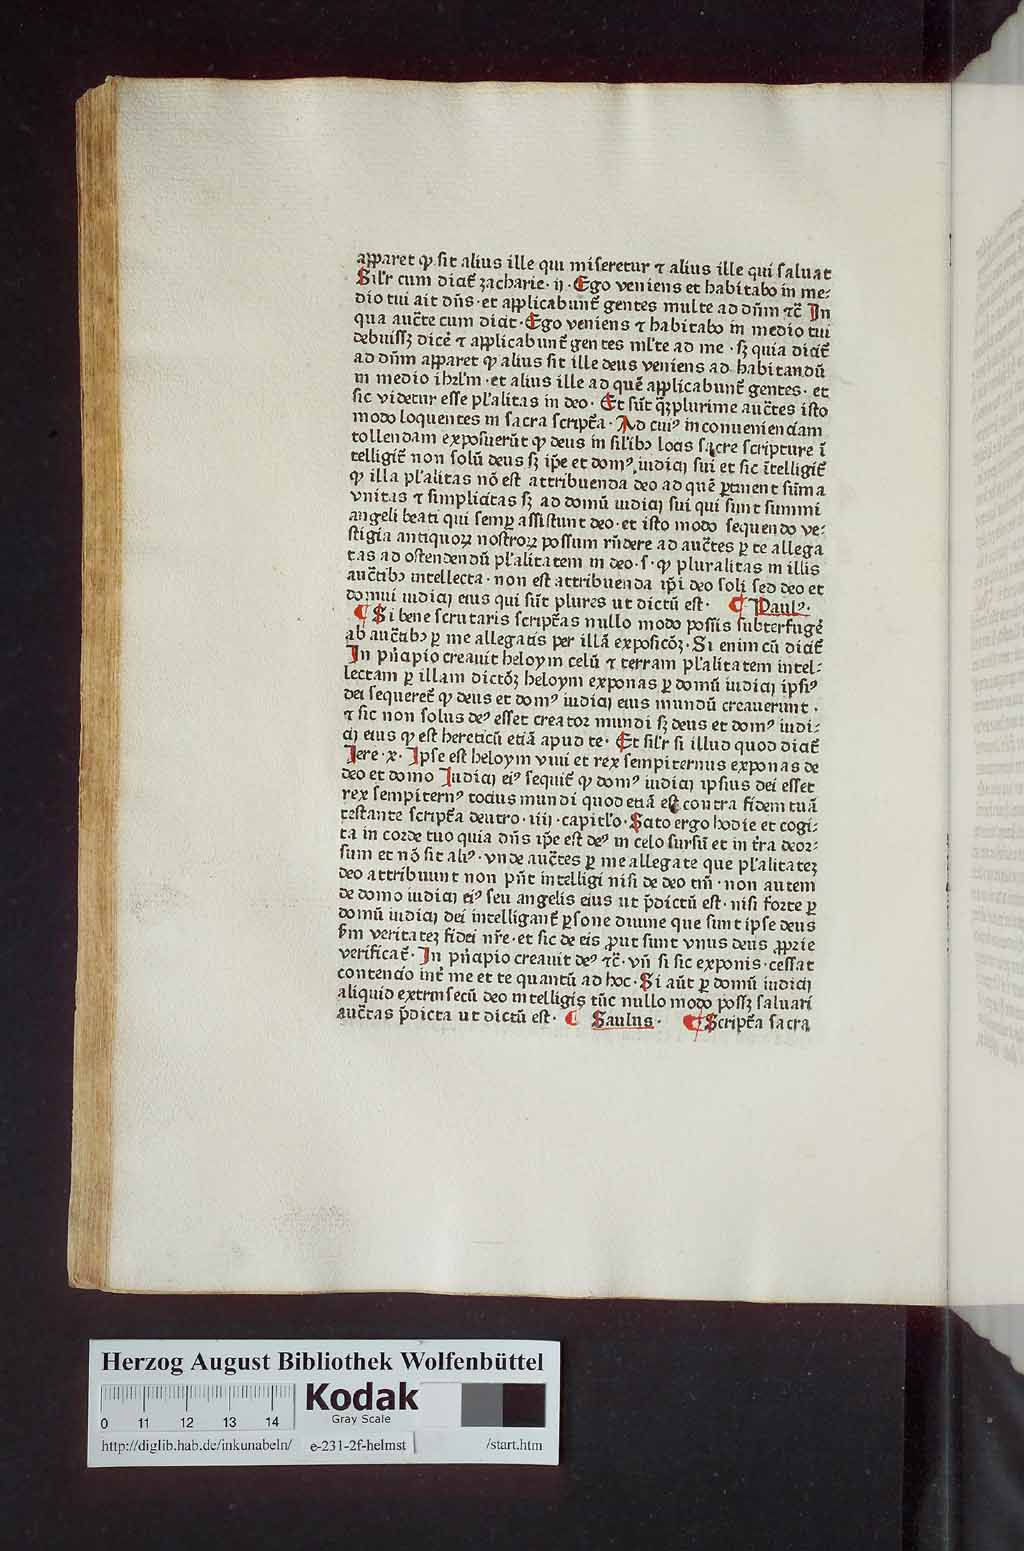 apparet ꝙ sit alius ille qui miseretur ⁊ alius ille qui saluat
Silꝉr cum dicit̄ zacharie · ij · Ego veniens et habitabo in me⸗
dio tui ait dn̄s · et applicabunt̄ gentes multe ad dn̄m ⁊c̄ In
qua auc̄te cum dicit · Ego veniens ⁊ habitabo in medio tui
debuissꝫ dicē ⁊ applicabunt̄ gentes mlꝉte ad me · sꝫ quia dicit̄
ad dn̄m apparet ꝙ alius sit ille deus veniens ad habitandū
in medio ihrlꝉm · et alius ille ad quē applicabunt̄ gentes · et
sic videtur esse plꝉalitas in deo · Et sūt qꝫplurime auc̄tes isto
modo loquentes in sacra script̄a · Ad cuiꝰ inconuenienciam
tollendam exposuerūt ꝙ deus in silꝉibꝫ locis sacre scripture ī
telligit̄ non solū deus sꝫ ip̄e et domꝰ iudicij sui et sic ītelligit̄
ꝙ illa plꝉalitas nō est attribuenda deo ad quē ꝑtinent sūma
vnitas ⁊ simplicitas sꝫ ad domū iudicij sui qui sunt summi
angeli beati qui semꝑ assistunt deo · et isto modo sequendo ve⸗
stigia antiquoꝝ nostroꝝ possum rn̄dere ad auc̄tes ꝑ te allega
tas ad ostendendū plꝉalitatem in deo · s · ꝙ pluralitas in illis
auc̄tibꝫ intellecta · non est attribuenda ip̄i deo soli sed deo et
domui iudicij eius qui sūt plures ut dictū est · ¶ Paulꝰ ·
¶ Si bene scrutaris script̄as nullo modo possis subterfugē
ab auc̄tibꝫ ꝑ me allegatis per illā exposicōꝫ · Si enim cū dicit̄
In pn̄cipio creauit heloym celū ⁊ terram plꝉalitatem intel⸗
lectam ꝑ illam dictōꝫ heloym exponas ꝑ domū iudicij ipsiꝰ
dei sequeret̄ ꝙ deus et domꝰ iudicij eius mundū creauerunt ·
⁊ sic non solus deꝰ esset creator mundi sꝫ deus et domꝰ iudi⸗
cij eius ꝙ est hereticū etiā apud te · Et silꝉr si illud quod dicit̄
Jere · x · Ipse est heloym viui et rex sempiternus exponas de
deo et domo Iudicij eiꝰ sequit̄ ꝙ domꝰ iudicij ipsius dei esset
rex sempiternꝰ tocius mundi quod etiā est contra fidem tuā
testante script̄a deutro · iiij · capitlꝉo · Scito ergo hodie et cogi⸗
ta in corde tuo quia dn̄s ip̄e est deꝰ in celo sursū et in t̄ra deor⸗
sum et nō sit aliꝰ · vnde auc̄tes ꝑ me allegate que plꝉalitateꝫ
deo attribuunt non pn̄t intelligi nisi de deo tm̄ · non autem
de domo iudicij eiꝰ seu angelis eius ut p̄dictū est · nisi forte ꝑ
domū iudicij dei intelligant̄ ꝑsone diuine que sunt ipse deus
ẜm veritateꝫ fidei nr̄e · et sic de eis ꝓut sunt vnus deus ꝓprie
verificat̄ · In pn̄cipio creauit deꝰ ⁊c̄ · vn̄ si sic exponis · cessat
contencio int̄ me et te quantū ad hoc · Si aūt ꝑ domū iudicij
aliquid extrinsecū deo intelligis tūc nullo modo possꝫ saluari
auc̄tas p̄dicta ut dictū est · ¶ Saulus · ¶ Script̄a sacra
Herzog August Bibliothek Wolfenbüttel
0 11 12 13 14
Kodak
Gray Scale
http://diglib.hab.de/inkunabeln/ e-231-2f-helmst /start.htm